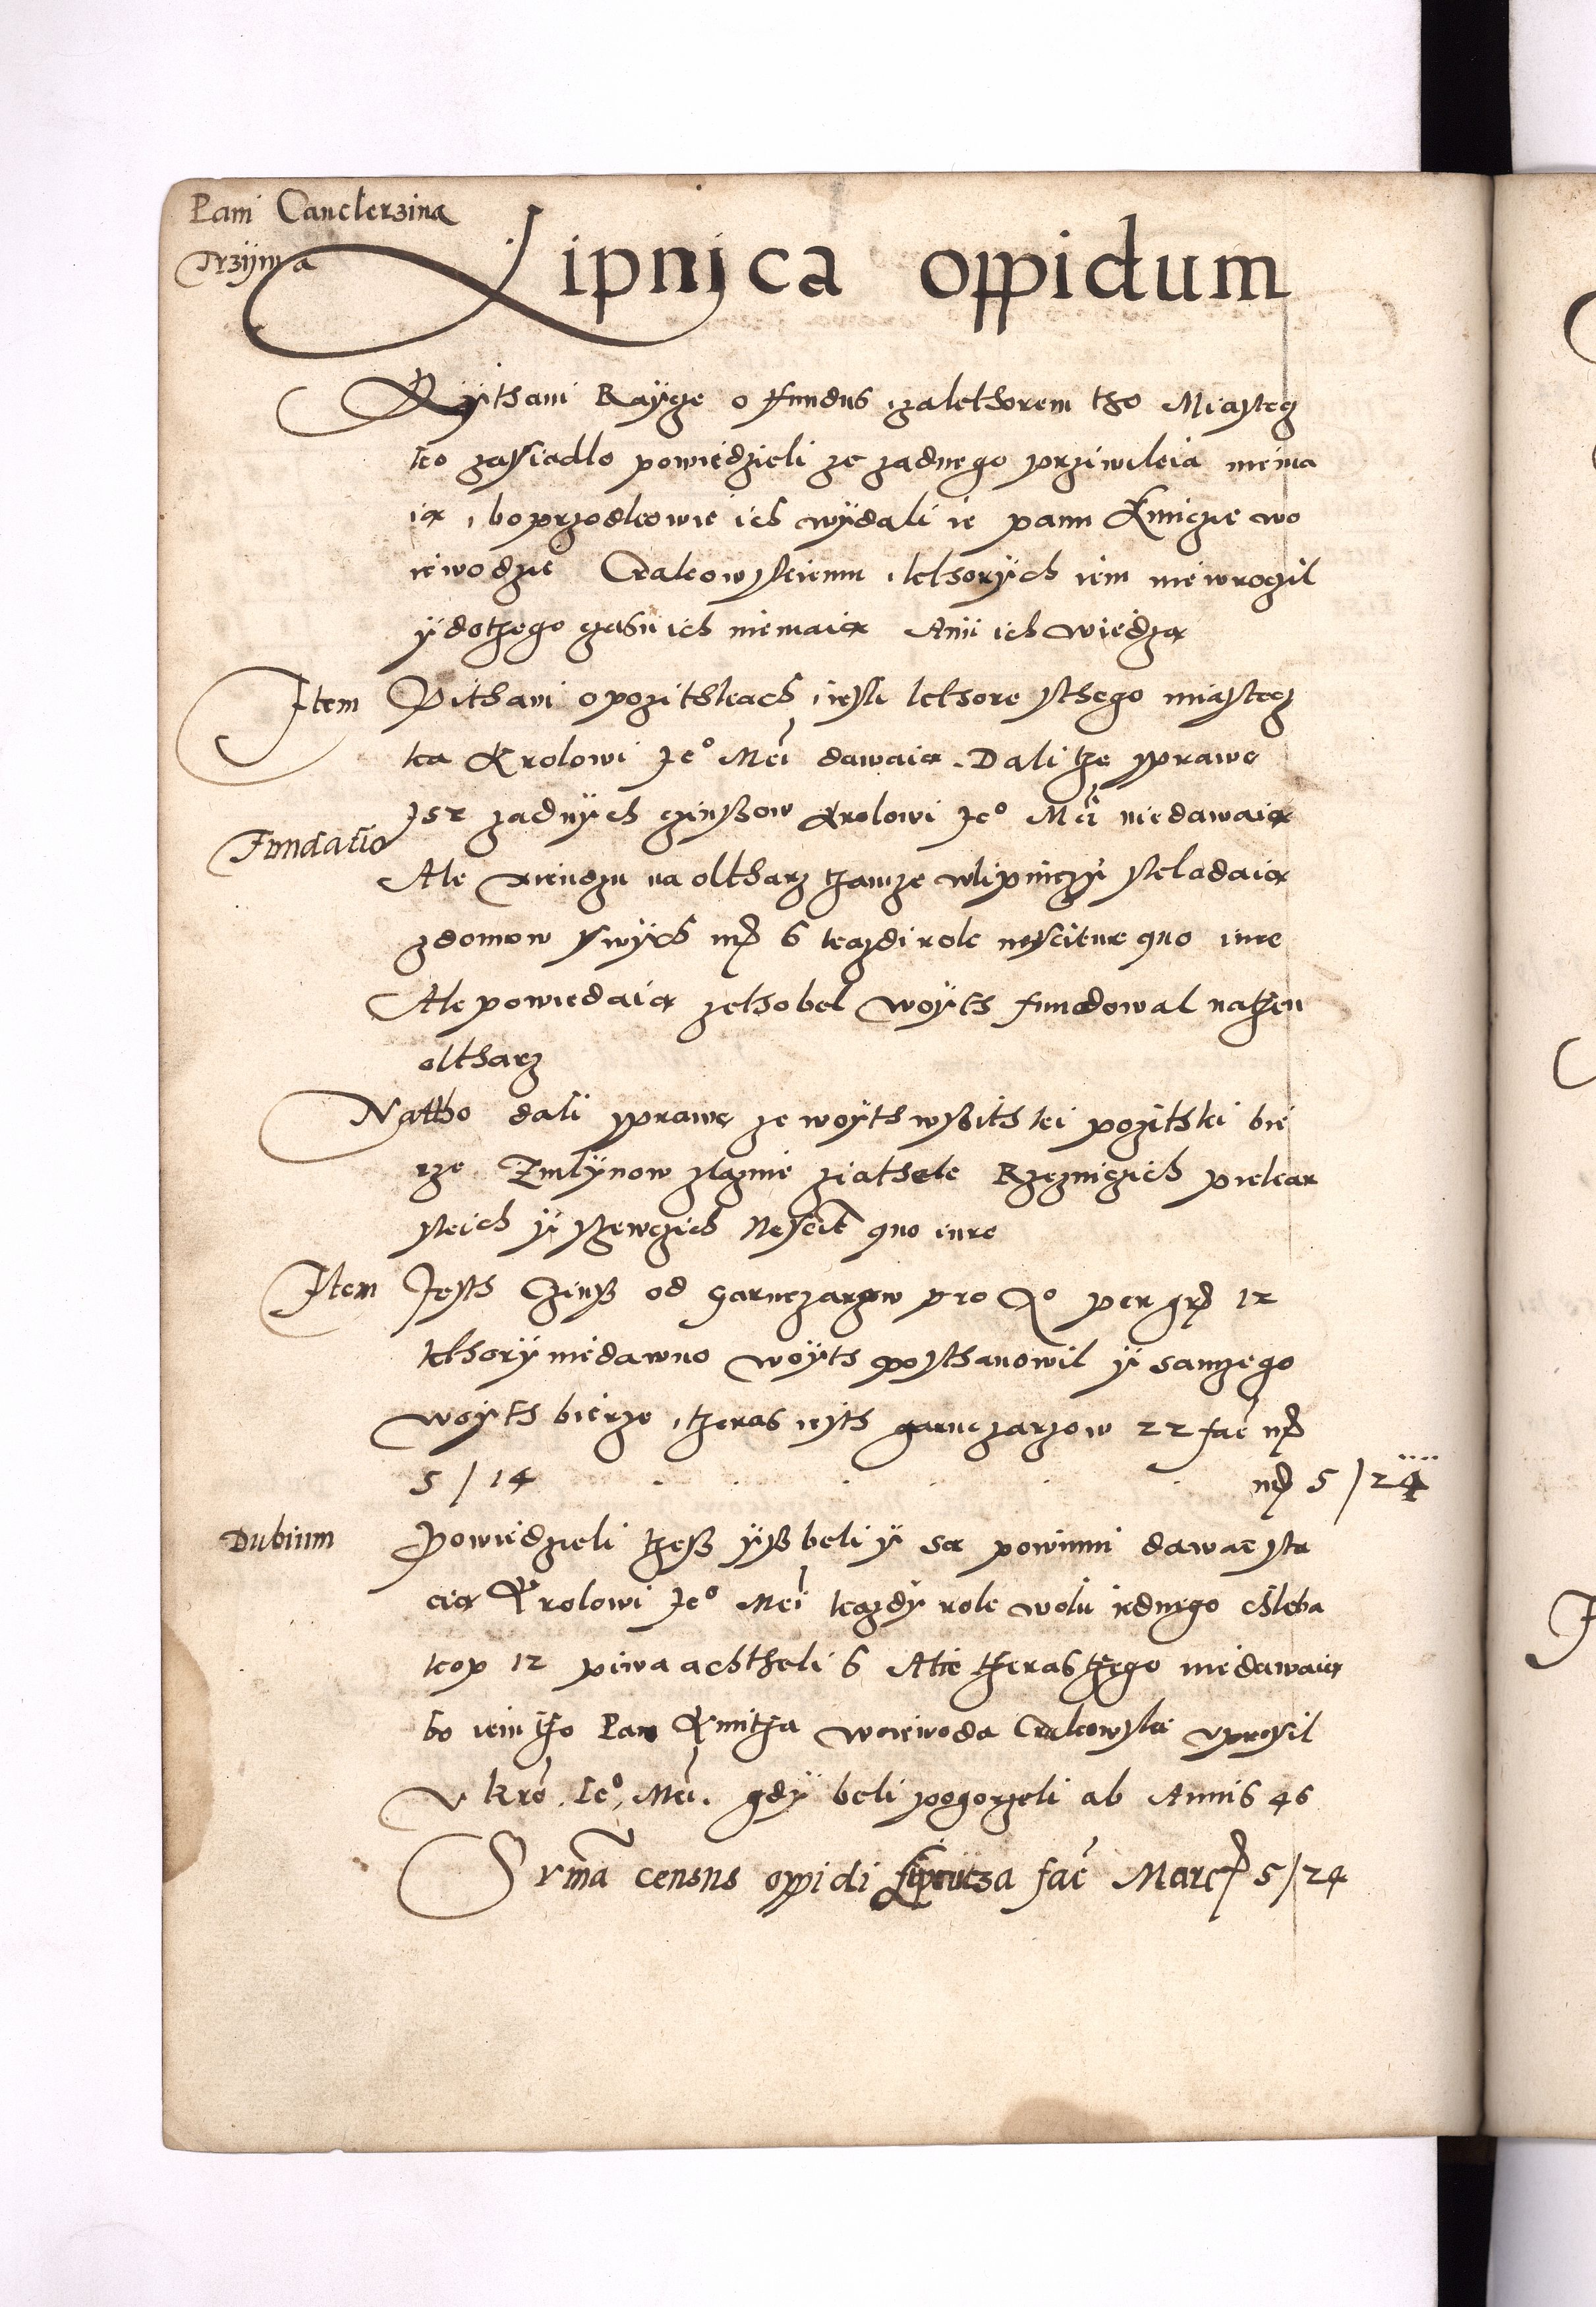 Pani Canclerzina
Trzÿma
Lipnica oppidum
Pÿthani Rayze o fundus zakthorem tho Miastecz
ko zasiadlo powiedzieli ze zadnego prziwileia niema
ią, bo przodkowie ich wÿdali ie panu Kmiczie wo
iewodzie Crakowskiemu, kthorÿch iem niewroczil
ÿ dotzego czasu ich niemaią Anii ich wiedzą
Item Pithani o pozithkach, iesli kthore sthego miastecz
ka Krolowi Je° Mci dawaią. Dali tze sprawe
Fundatio isz zadnÿch czinssow Krolowi Je° Mci niedawaią
Ale xiendzu na oltharz tzamze wlipniczÿ skladaią
zdomow swÿch mr 6 kazdi role nescitur quo iure
Ale powiedaią zethobel woÿth fundowal natzen
oltharz
Nattho dali sprawe ze woÿth wssithki pozithki bie
rze Zmlÿnow zlaznie ziathek Rzezniczich piekar
skich ÿ szewczich Nescit quo iure
Item Jesth Czinss od Garnczarzow pro Qo per gr 12
kthorÿ niedawno woÿth posthanowil ÿ samzego
woÿth bierze, tzeras iesth garnczarzow 22 fac mr
5 / 14 mr 5 / 24
Dubium Powiedzieli tzess ÿss beli ÿ są powinni dawac sta
cią Krolowi Je° Mci kazdÿ rok wolu iednego chleba
kop 12 piwa achtheli 6 Ale tzeras tzego niedawaią
bo iem tho Pan Kmitha woiewoda Crakowski uprosil
v kro. Je°. Mci. gdÿ beli pogorzeli ab Annis 46
Summa census oppidi Lipnicza fac Marc 5 / 24